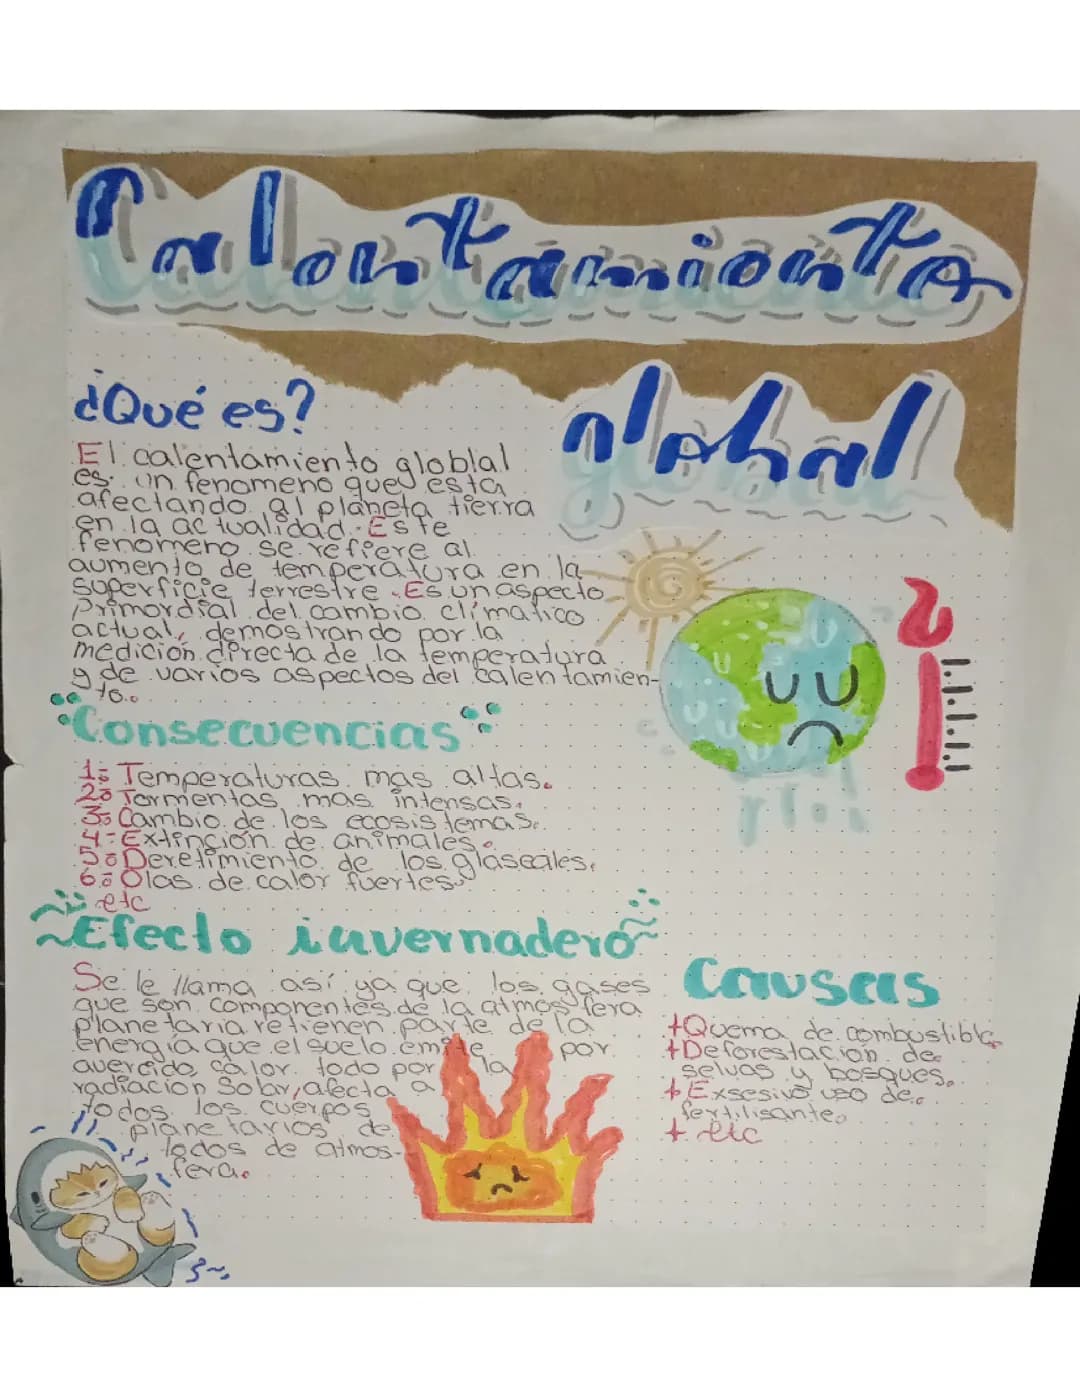 Calentamiento
global
¿Qué es?
El calentamiento globlal
es un fenomeno que esta
afectando al planeta tierra
en la actualidad. Este
fenomeno se refiere al
aumento de temperatura en la
superficie terrestre. Es un aspecto
primordial del cambio climatico
actual, demostrando por la
medición directa de la temperatura
y de varios aspectos del calentamien-
to..
Consecuencias
1: Temperaturas mas altas.
2: Tormentas mas intensas.
3: Cambio de los ecosistemas.
4: Extinción de animales.
5: Deretimiento de los glaseales.
6: Olas de calor fuertes.
etc
Efecto invernadero
Se le llama así ya que los gases
que son componentes de la atmosfera
planetaria retienen parte de la
energía que el suelo emite por
calor. todo por la
radiación Solar, afecta a
todos los cuerpos
planetarios de
todos de atmos-
fera.
Causas
+Quema de combustible.
+Deforestación de
selvas y bosques.
+Exsesivo uso de
fertilisante.
+ etc